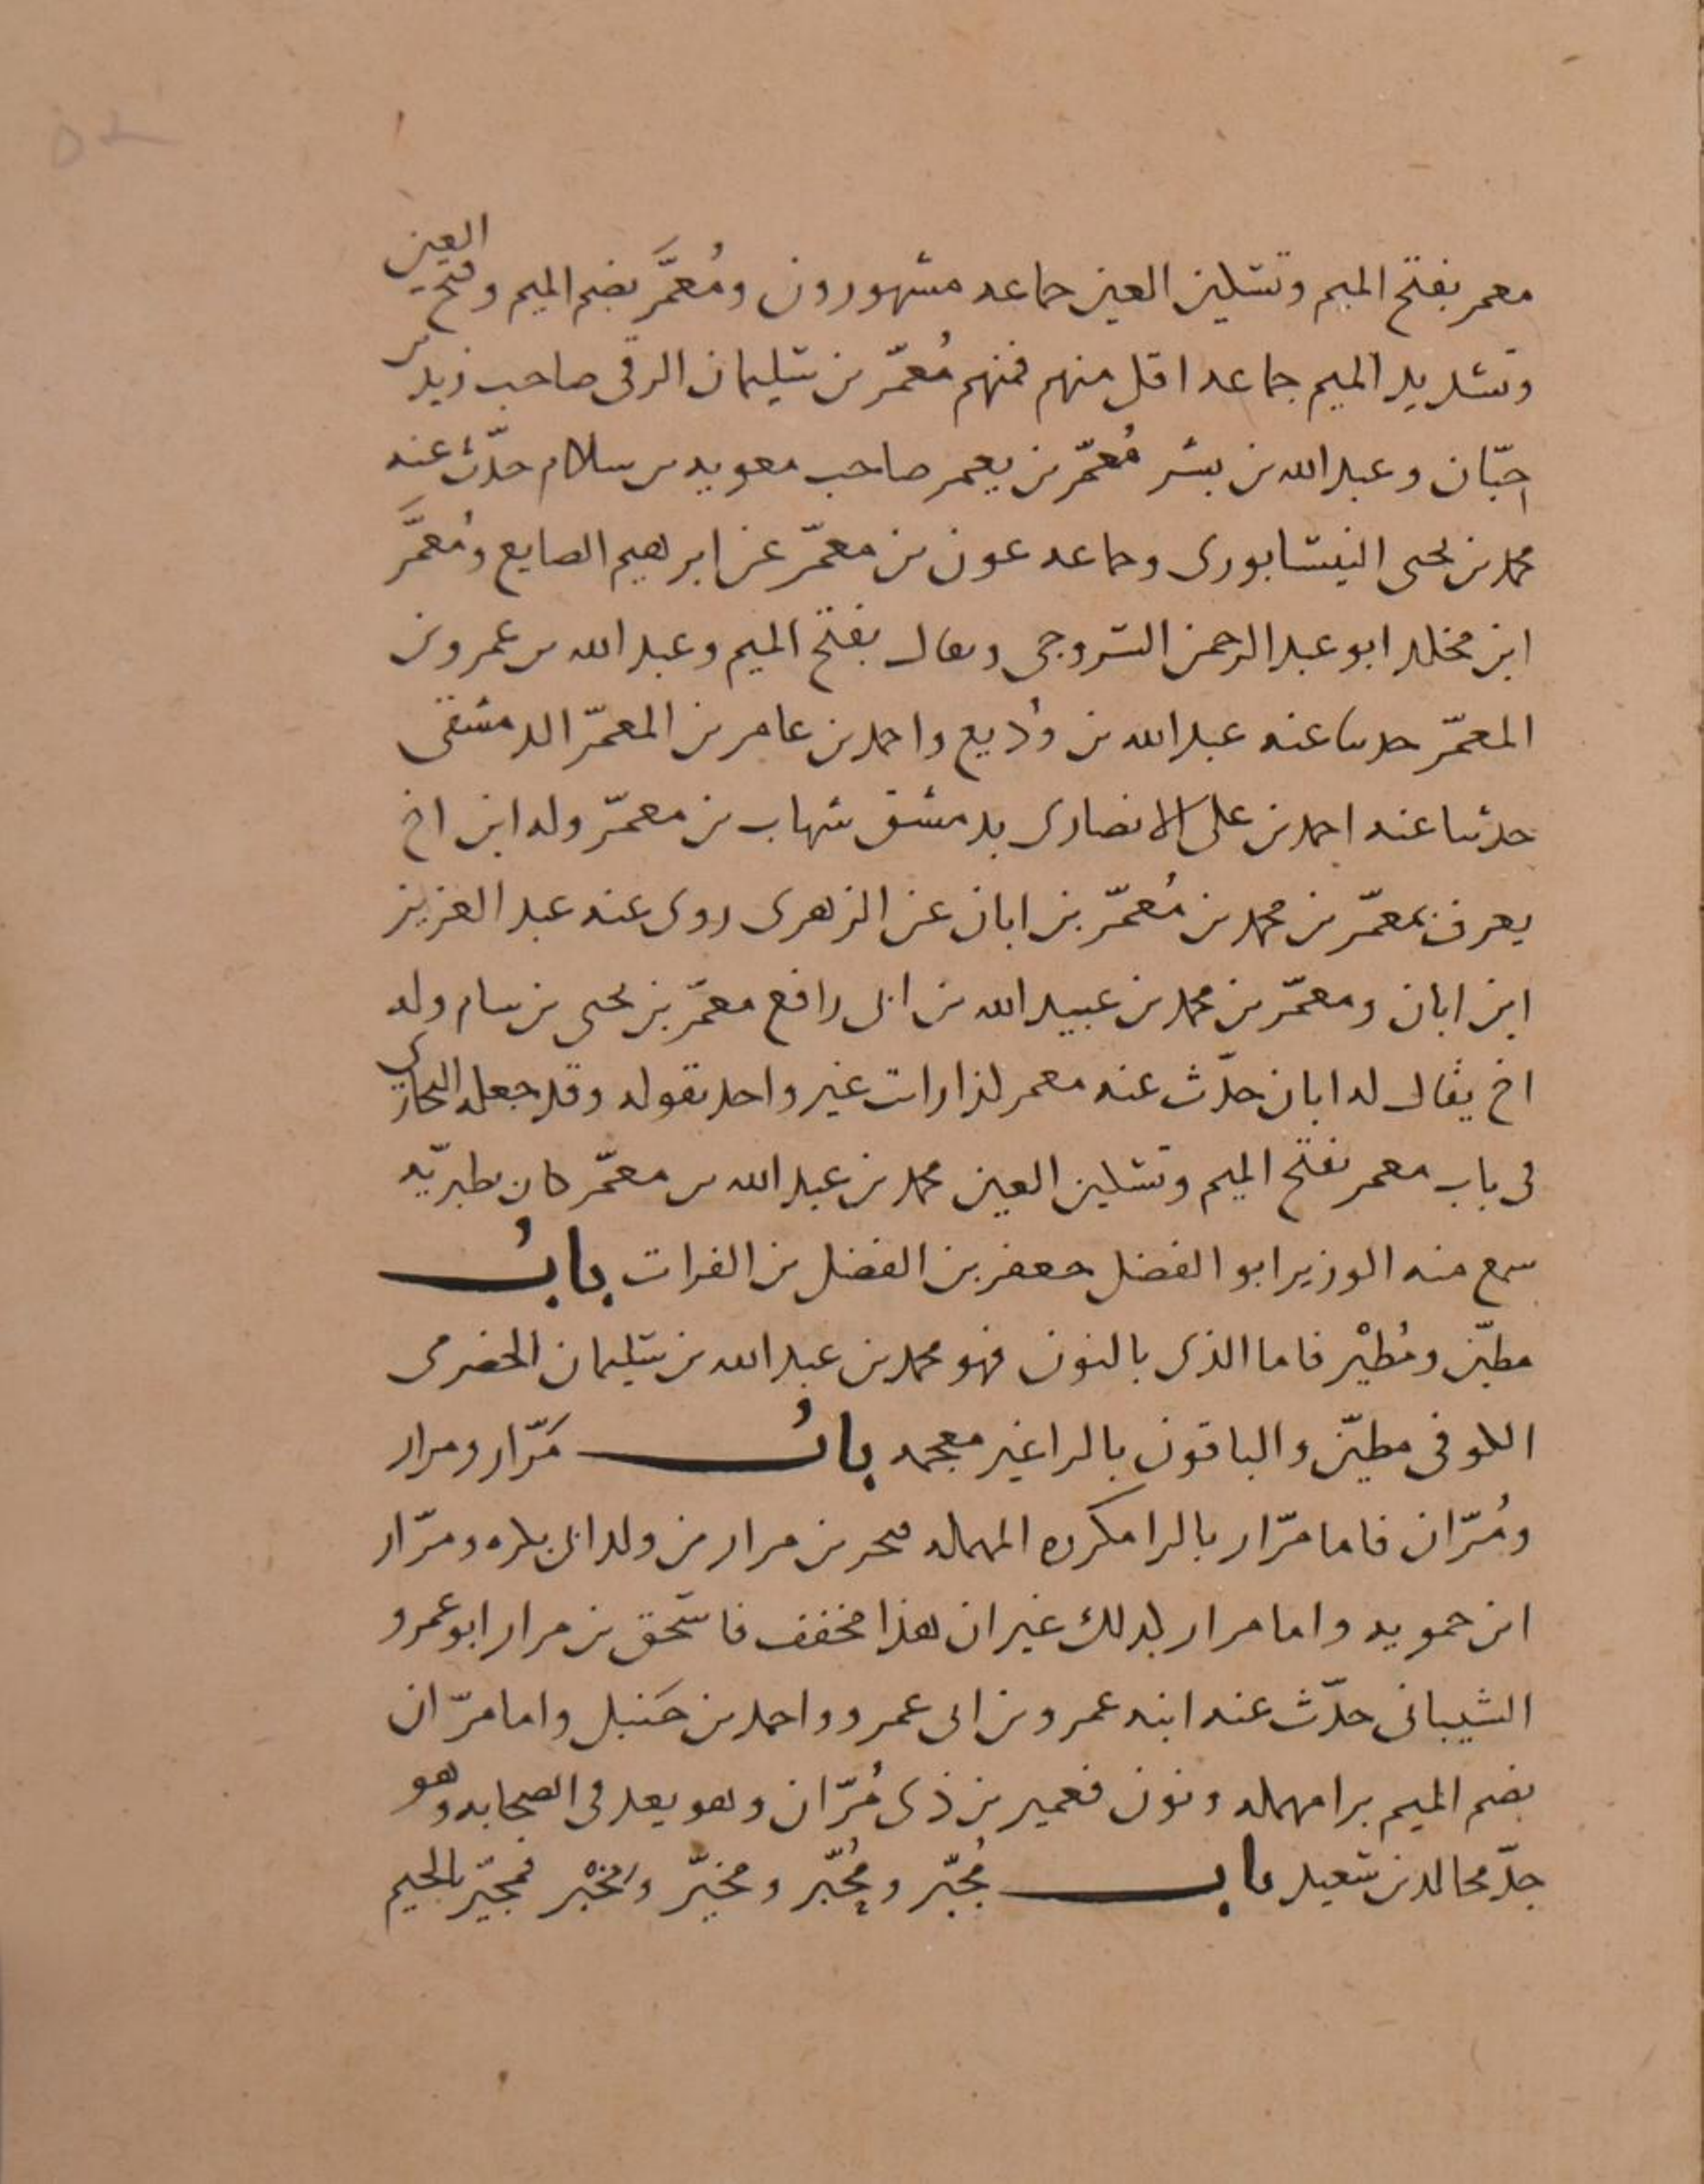 معمر بفتح الميم وتسكين العين جماعه مشهورون ومُعَمَّر بضم الميم وفتح العين
وتشديد الميم جماعه اقل منهم فمنهم مُعمّر بن سليمان الرقى صاحب زيد بن
حبّان وعبد الله بن بشر مُعمّر بن يعمر صاحب معويه بن سلام حدّث عنه
محمد بن يحيى النيسابورى وجماعه عون بن معمّر عن ابرهيم الصايغ ومُعمَّر
ابن مخلد ابو عبد الرحمن السروجى ويقال بفتح الميم وعبد الله بن عمرو بن
المعمّر حدثنا عنه عبد الله بن وُديع واحمد بن عامر بن المعمّر الدمشقى
حدثنا عنه احمد بن على الانصارى بدمشق شهاب بن معمّر وله ابن اخ
يعرف بمعمّر بن محمد بن مُعمّر بن ابان عن الزهرى روى عنه عبد العزيز
ابن ابان ومعمّر بن محمد بن عبيد الله بن ابى رافع معمّر بن يحيى بن سام وله
اخ يقال له ابان حدّث عنه معمر لذا رات غير واحد يقوله وقد جعله البخارى
فى باب معمر بفتح الميم وتسكين العين محمد بن عبد الله بن معمّر كان بطبريّه
سمع منه الوزير ابو الفضل جعفر بن الفضل بن الفرات بابُ
مطيّن ومُطيْر فاما الذى بالنون فهو محمد بن عبد الله بن سليمان الحضرمى
الكوفى مطيّن والباقون بالرا غير معجمه بابُ مَرّار ومرار
ومُرّان فاما مرّار بالرا مكرره المهمله فبحر بن مرار من ولد ابى بكره ومرّار
ابن حمويه واما مرار كذلك غير ان هذا مخفف فاسحق بن مرار ابو عمرو
الشيبانى حدّث عنه ابنه عمرو بن ابى عمرو واحمد بن حَنبل واما مرّان
بضم الميم برا مهمله ونون فعمير بن ذى مُرّان وهو يعد فى الصحابه وهو
جدّ مجالد بن سعيد باب مُجبّر ومُحبّر ومخيَّر ومخْبر فمجبّر بالجيم